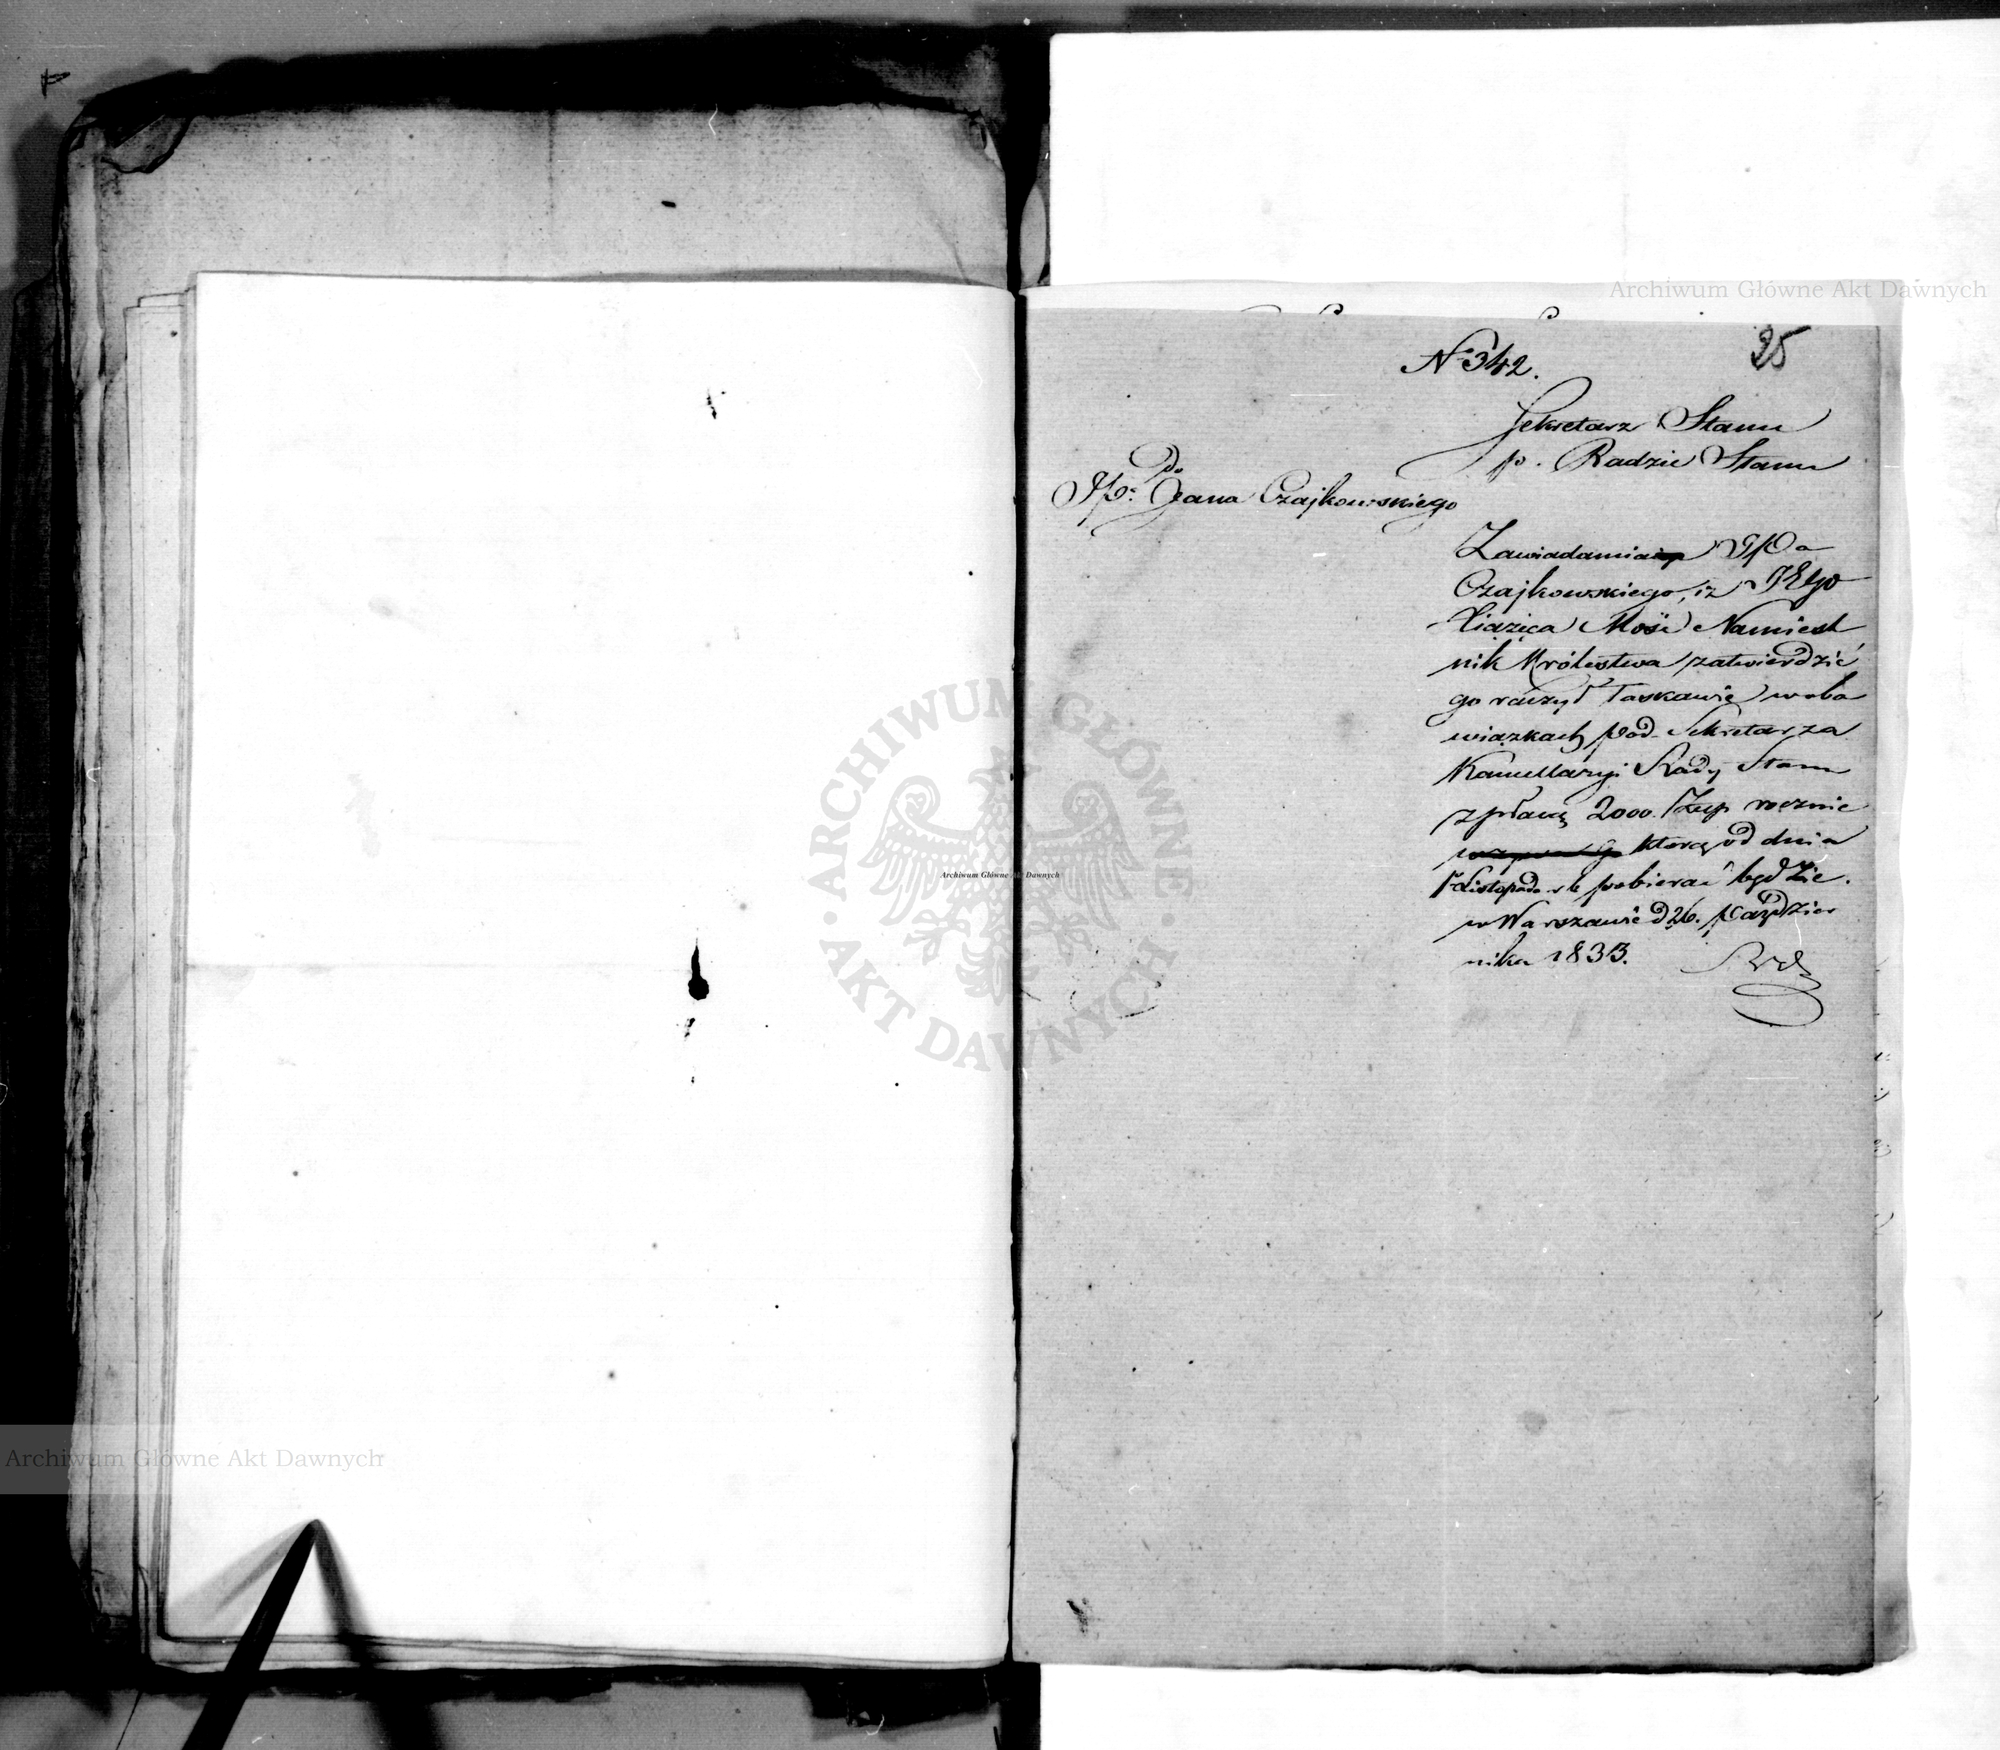 Archiwum Główne Akt Dawnych
25
N 342.
Sekretarz Stanu
p. Radzie Stanu
Do
JP. Jana Czajkowskiego
Zawiadamia JPa
Czajkowskiego, iż JEgo
Xiążęca Mość Namiest
nik Królestwa zatwierdzić
go raczył łaskawie w obo
wiązkach pod Sekretarza
Kancellaryi Rady Stanu
z płacą 2000. Złp rocznie
którą od dnia
1 Listopada rb pobierać będzie.
w Warszawie d 26. Paździer
nika 1833.
ARCHIWUM GŁÓWNE
• AKT DAWNYCH •
Archiwum Główne Akt Dawnych
Archiwum Główne Akt Dawnych